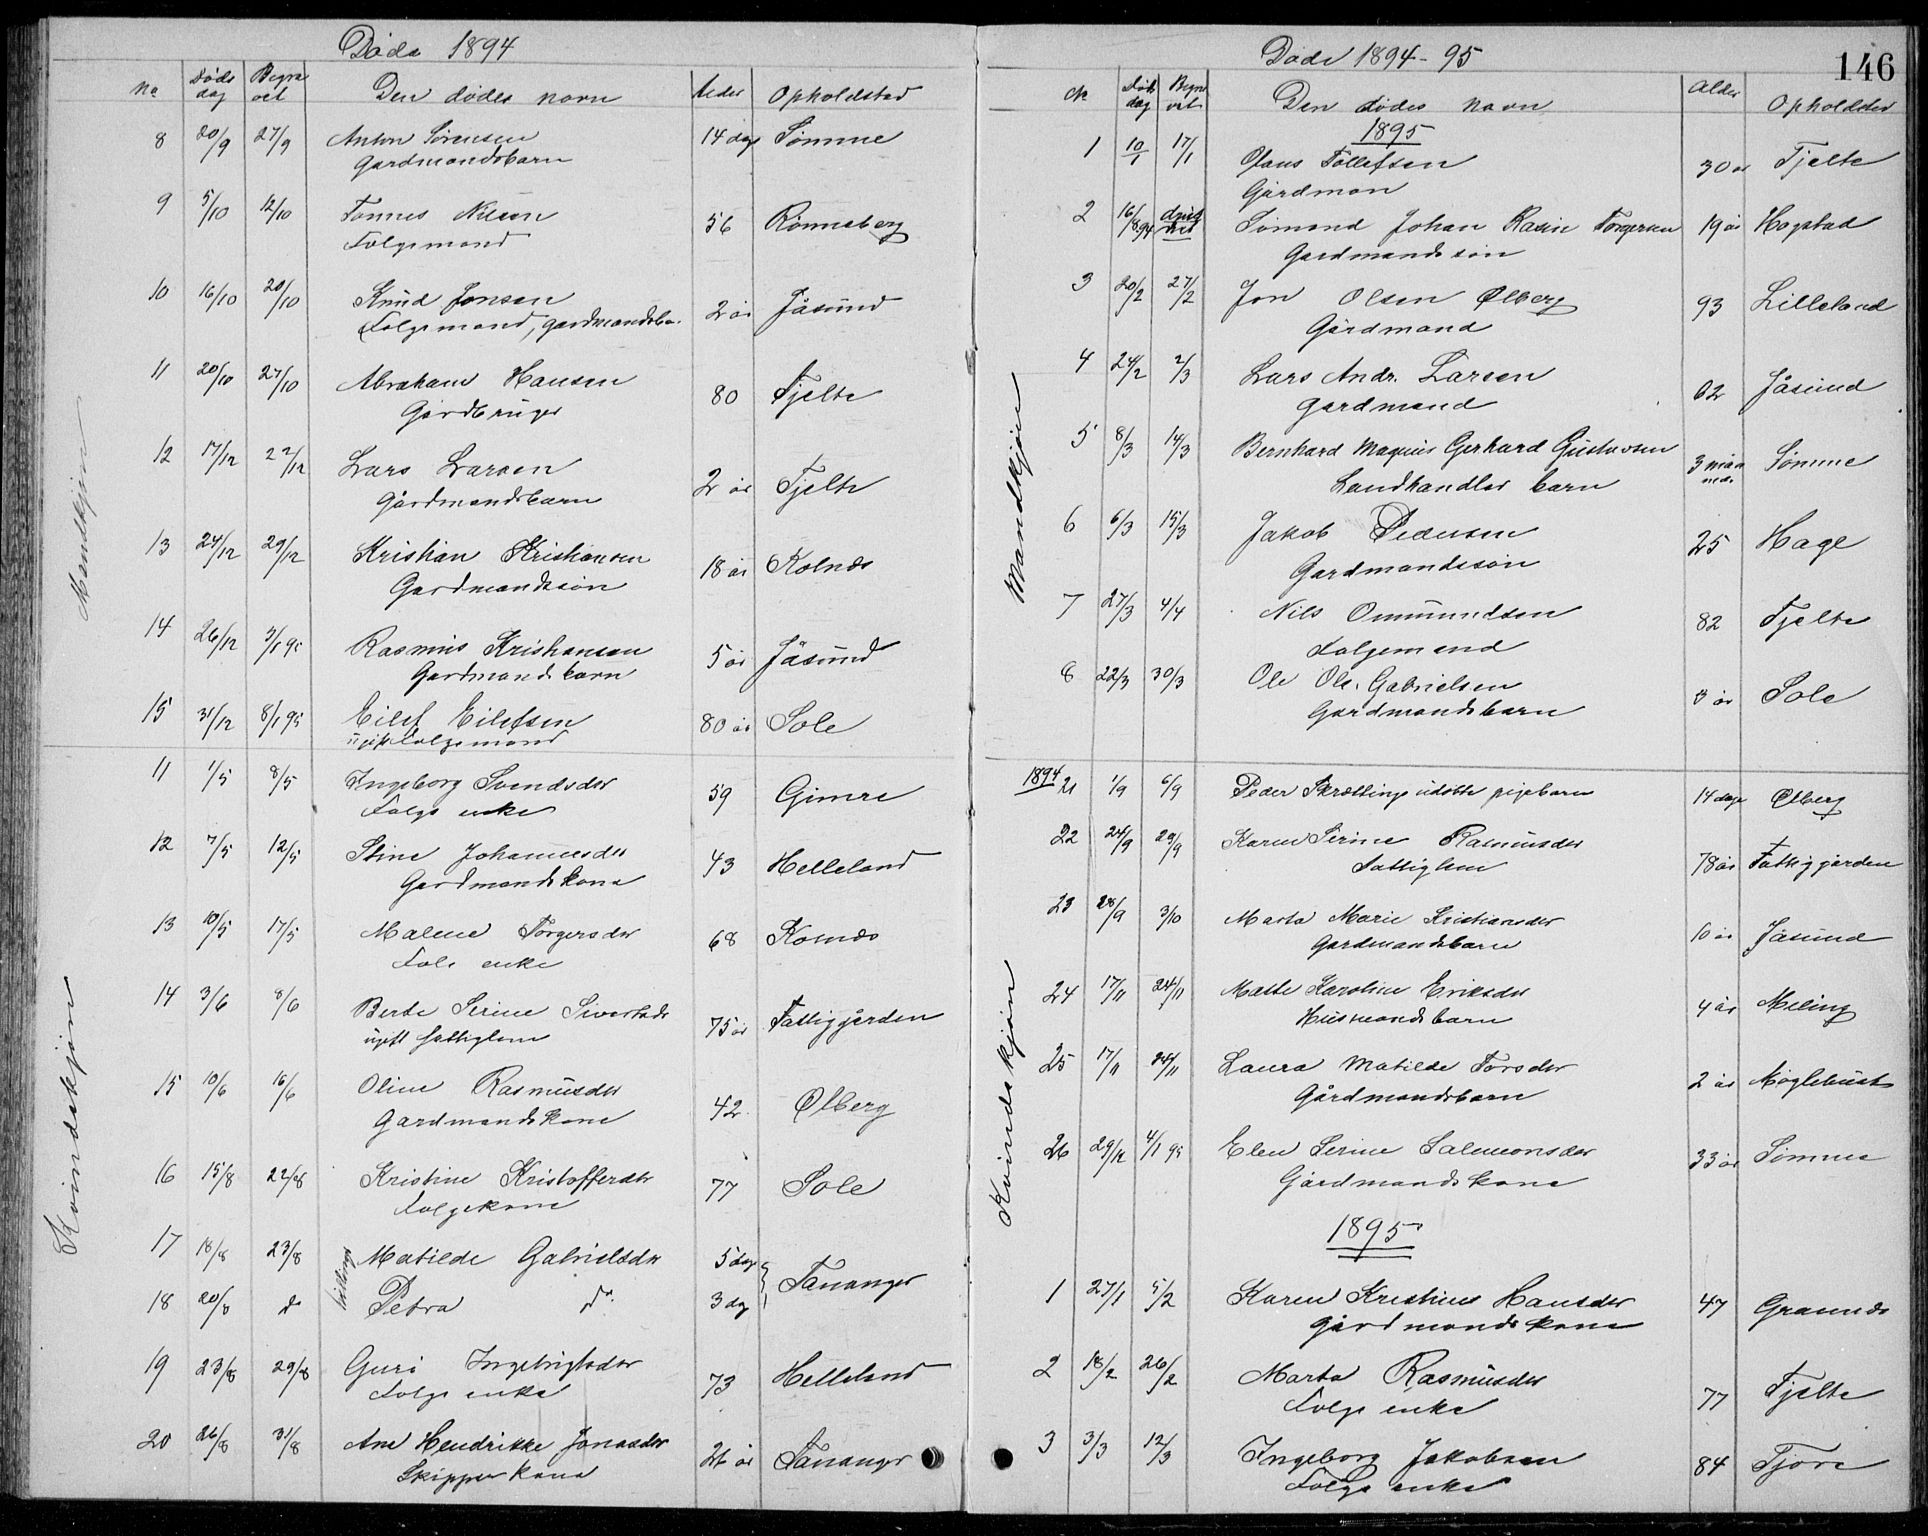 Døde 1894
No Døds dag Begra vet Den dødes navn Alder Opholdsted
Mandkjøn
8 20/9 27/9 Anton Sørensen 14 dage Sømme
Gardmandsbarn
9 5/10 12/10 Tønnes Nilsen 56 Rønneberg
Folgemand
10 16/10 20/10 Knud Jonsen 2 år Jåsund
Folgemand, gardmandsba.
11 20/10 27/10 Abraham Hansen 80 Tjelte
Gårdbruger
12 17/12 22/12 Lars Larsen 2 år Tjelte
Gårdmandsbarn
13 24/12 29/12 Kristian Kristiansen 18 år Kolnæs
Gardmandssøn
14 26/12 3/1 95 Rasmus Kristiansen 5 år Jåsund
Gardmandsbarn
15 31/12 8/1 95 Eilef Eilefsen 80 år Sole
ugift Folgemand
Kvindekjøn
11 1/5 8/5 Ingeborg Svendsdtr 59 Gimre
Folge enke
12 7/5 12/5 Stine Johannesdtr 43 Helleland
Gardmandskone
13 10/5 17/5 Malene Torgersdtr 68 Kolnæs
Folg enke
14 3/6 8/6 Berte Serine Sivertsdtr 75 år Fattiggården
ugift fattiglem
15 10/6 16/6 Oline Rasmusdtr 42 Ølberg
Gardmandskone
16 15/8 22/8 Kristine Kristoffersdtr 77 Sole
Folgekone
17 18/8 23/8 tvillinger Matilde Gabrielsdtr 5 dage Tananger
18 20/8 do Petra do 3 dag
19 23/8 29/8 Guri Ingebrigtsdtr 73 Helleland
Folge enke
20 26/8 31/8 Ane Hendrikke Jonasdtr 26 år Tananger
Skipperkone
Døde 1894-95
146
No Døds dag Begra vet Den dødes navn Alder Opholdsted
1895
Mandkjøn
1 10/1 17/1 Olaus Tollefsen 30 år Tjelte
Gårdman
2 16/8 94 Sømand Johan Rasin Torgersen 19 år Hogstad
Gardmandssøn
3 20/2 27/2 Jon Olsen Ølberg 93 Lilleland
Gårdmand
4 24/2 2/3 Lars Andr. Larsen 62 Jåsund
Gardmand
5 8/3 14/3 Bernhard Magnus Gerhard Gustavsen 3 måneder Sømme
Landhandler barn
6 6/3 15/3 Jakob Pedersen 25 Hage
Gardmandssøn
7 27/3 4/4 Nils Ommundsen 82 Tjelte
Folgemand
8 22/3 30/3 Ole Ols. Gabrielsen år Sole
Gardmandsbarn
Kvindekjøn
1894 21 1/9 6/9 Peder Skrettings udøbte pigebarn 14 dage Ølberg
22 24/9 29/9 Karen Serine Rasmusdtr 78 år Fattiggården
Fattiglem
23 28/9 3/10 Marta Marie Kristiansdtr 10 år Jåsund
Gardmandsbarn
24 17/11 24/11 Mette Karoline Eriksdtr 4 år Meling
Husmandsbarn
25 17/11 24/11 Laura Matilde Torsdtr 2 år Moglebust
Gårdmandsbarn
26 29/12 4/1 95 Elen Serine Salemonsdtr 33 år Sømme
Gårdmandskone
1895
1 27/1 5/2 Karen Kristine Hansdtr 47 Grannæs
Gårdmandskone
2 18/2 26/2 Marta Rasmusdtr 77 Tjelte
Folge enke
3 3/3 12/3 Ingeborg Jakobsen 84 Tjore
Folge enke